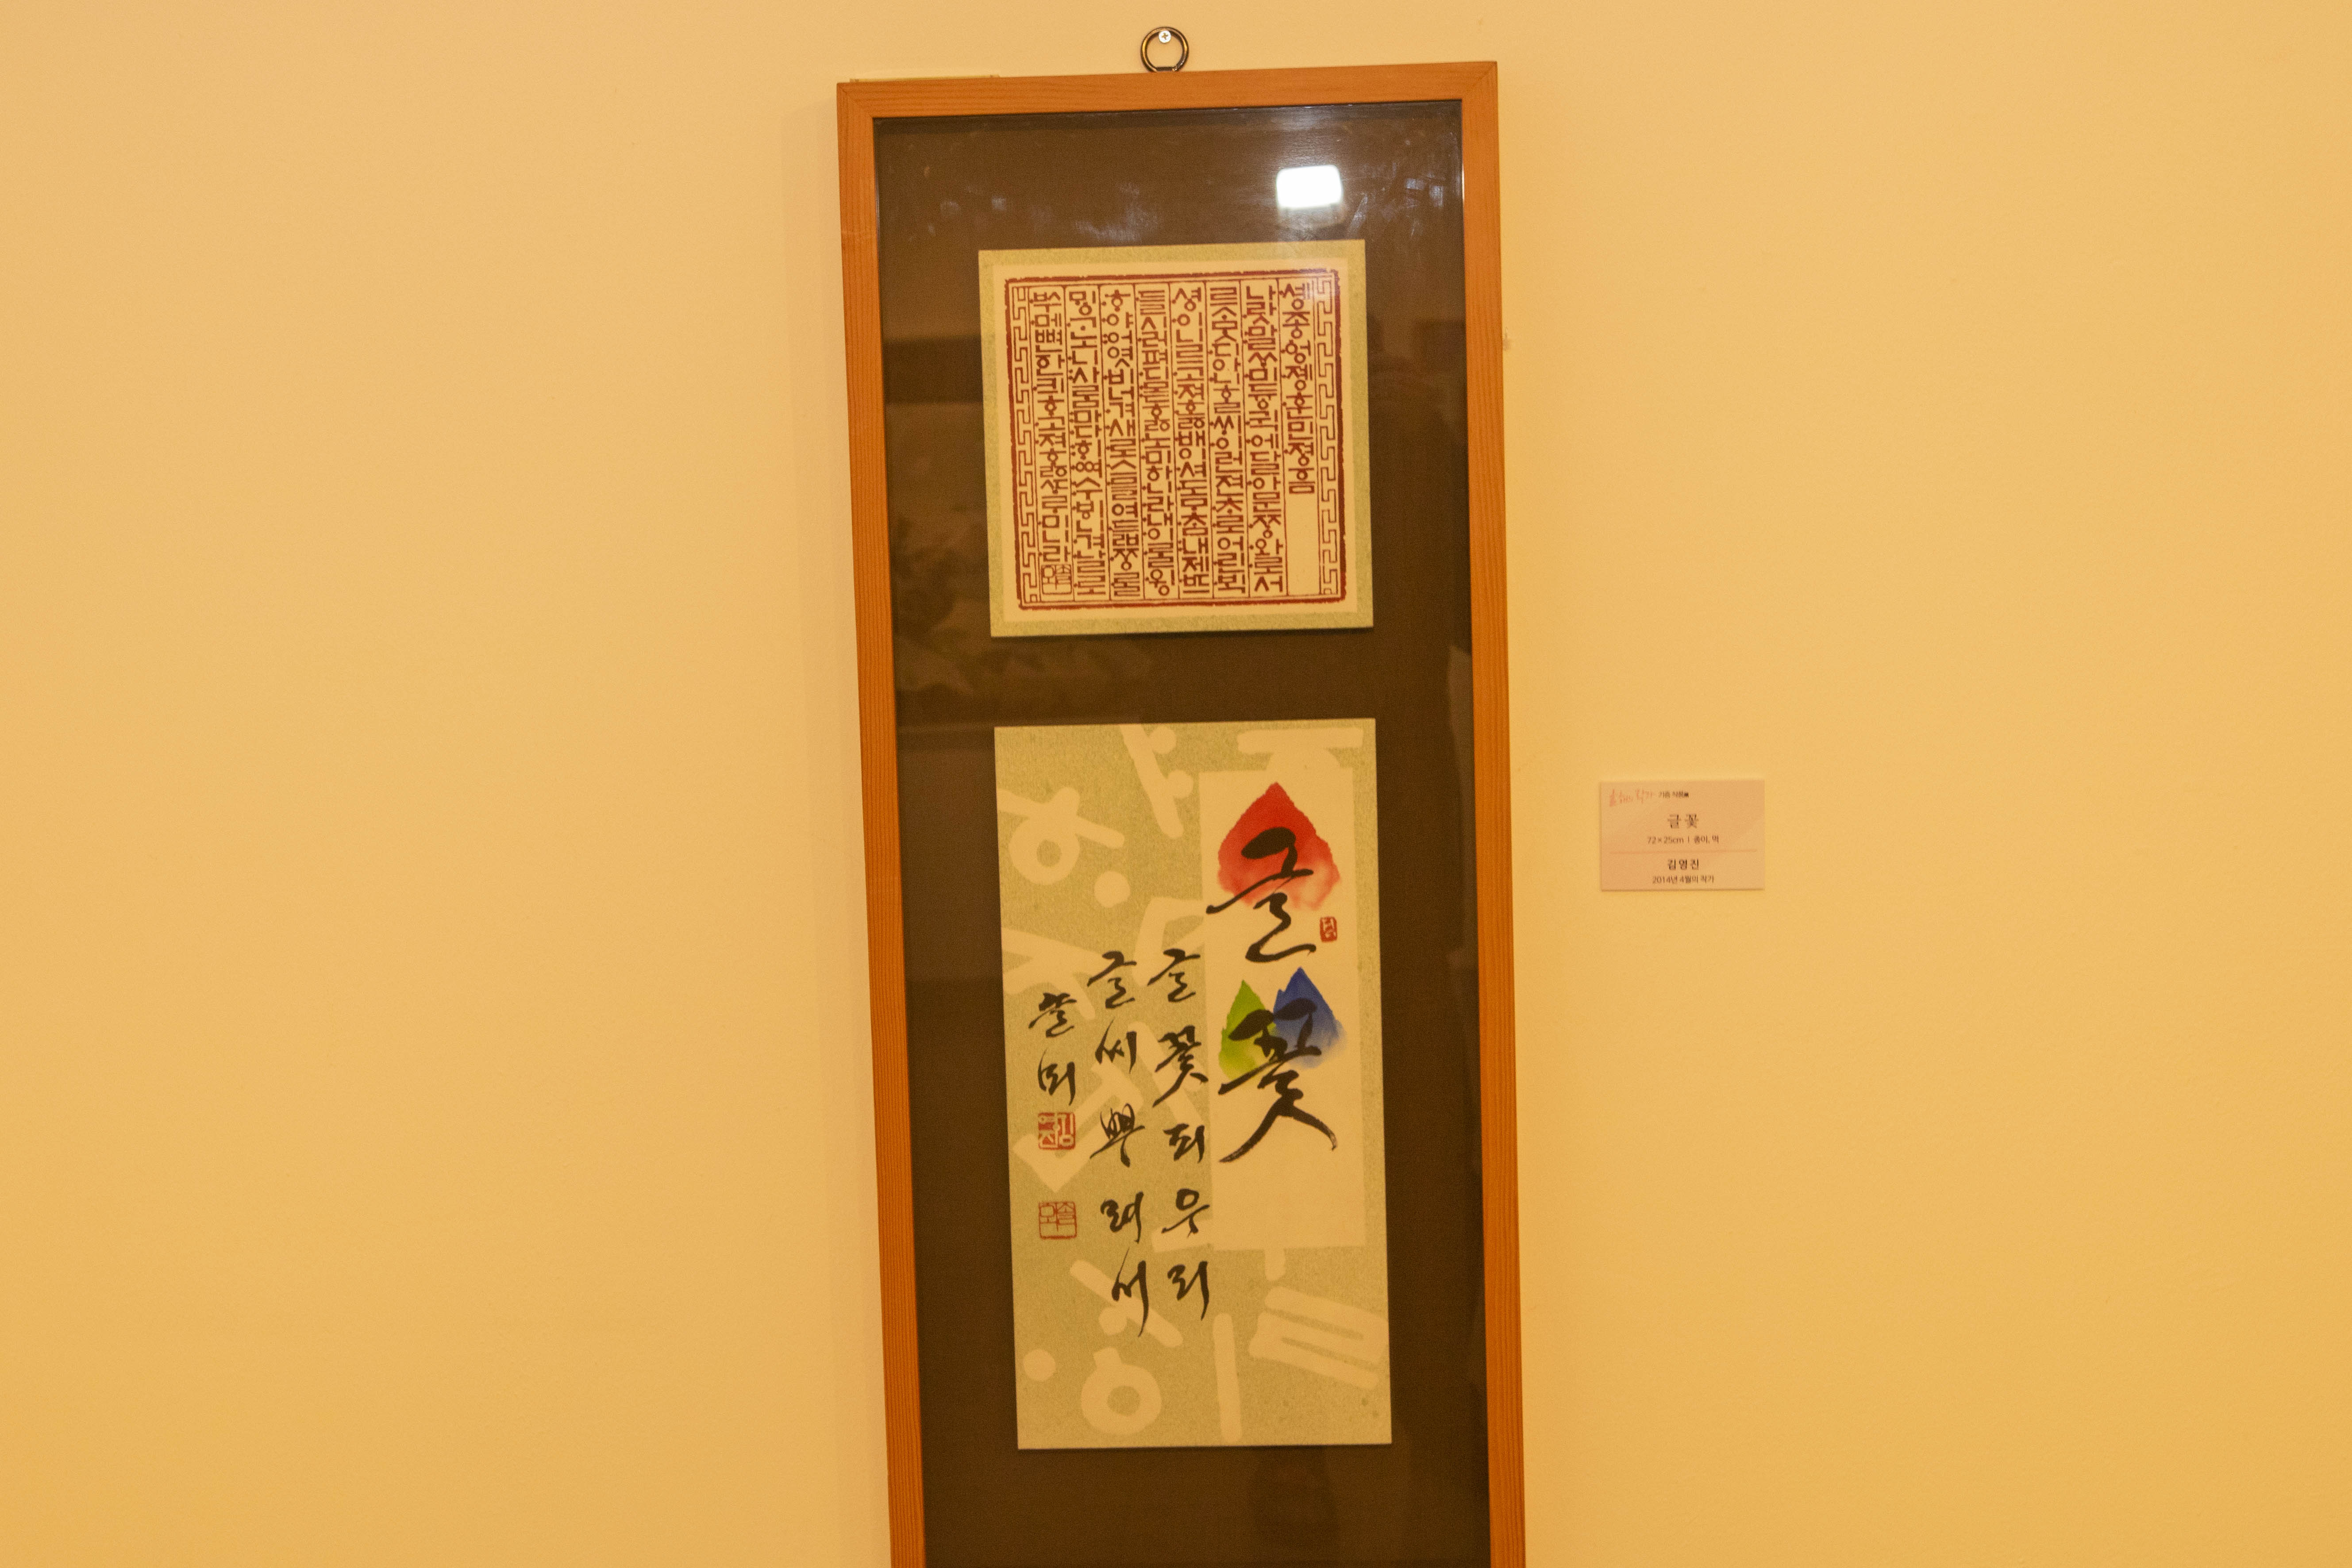 솅종엉졩훈민졍음
나랏말ᄊᆞ미듕귁에달아문ᄍᆞᆼ와로서
르ᄉᆞᄆᆞᆺ디아니ᄒᆞᆯᄊᆡ이런젼ᄎᆞ로어린ᄇᆡᆨ
셩이니르고져호ᇙ배이셔도ᄆᆞᄎᆞᆷ내제ᄠᅳ
들시러펴디몯ᄒᆞᇙ노미하니라내이ᄅᆞᆯ윙
ᄒᆞ야어엿비너겨새로스믈여듧ᄍᆞᆼᄅᆞᆯ
ᄆᆡᇰᄀᆞ노니사ᄅᆞᆷ마다ᄒᆡᅇᅧ수ᄫᅵ니겨날로
ᄡᅮ메뼌한킈ᄒᆞ고져ᄒᆞᇙᄯᆞᄅᆞ미니라
글꽃
글꽃피우리
글씨뿌려서
김영진
기증 작품展
글꽃
72×25cm ㅣ 종이, 먹
김영진
2014년 4월의 작가